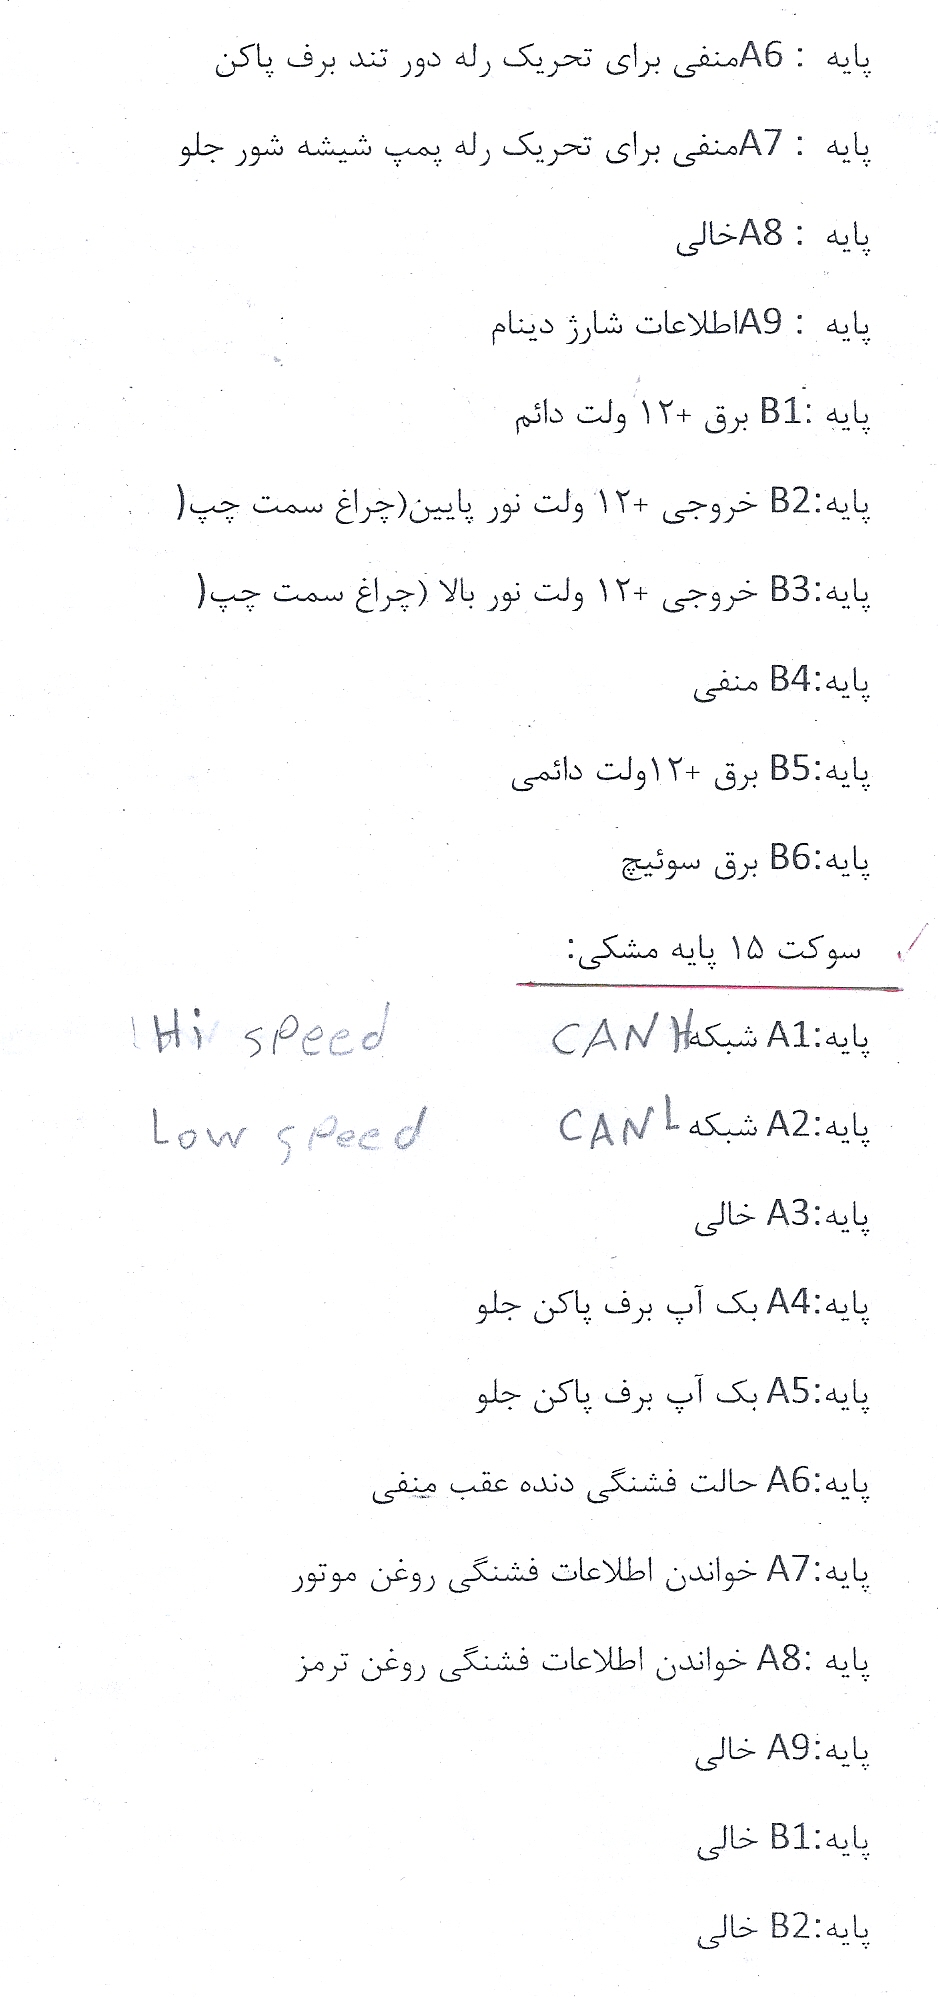 پایه : A6منفی برای تحریک رله دور تند برف پاکن
پایه : A7منفی برای تحریک رله پمپ شیشه شور جلو
پایه : A8خالی
پایه : A9اطلاعات شارژ دینام
پایه :B1 برق +۱۲ ولت دائم
پایه:B2 خروجی +۱۲ ولت نور پایین(چراغ سمت چپ(
پایه:B3 خروجی +۱۲ ولت نور بالا (چراغ سمت چپ(
پایه:B4 منفی
پایه:B5 برق +۱۲ولت دائمی
پایه:B6 برق سوئیچ
سوکت ۱۵ پایه مشکی:
پایه:A1 شبکه CAN H Hi speed
پایه:A2 شبکه CAN L Low speed
پایه:A3 خالی
پایه:A4 بک آپ برف پاکن جلو
پایه:A5 بک آپ برف پاکن جلو
پایه:A6 حالت فشنگی دنده عقب منفی
پایه:A7 خواندن اطلاعات فشنگی روغن موتور
پایه :A8 خواندن اطلاعات فشنگی روغن ترمز
پایه:A9 خالی
پایه:B1 خالی
پایه:B2 خالی